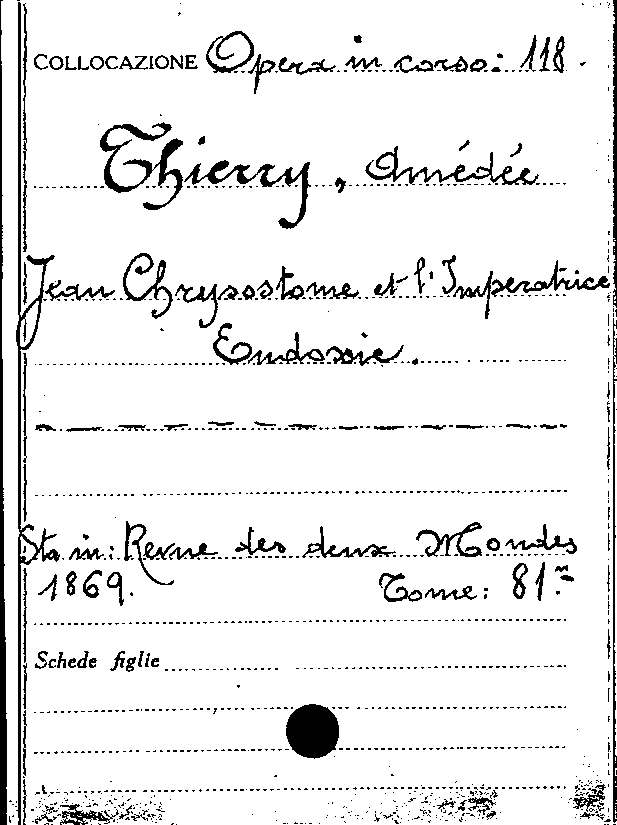 COLLOCAZIONE Opera in corso: 118.
Thierry, Amédée
Jean Chrysostome et l'Imperatrice
Eudoxie.
Sta in: Revue des deux Mondes
1869. Tome: 81.m
Schede figlie